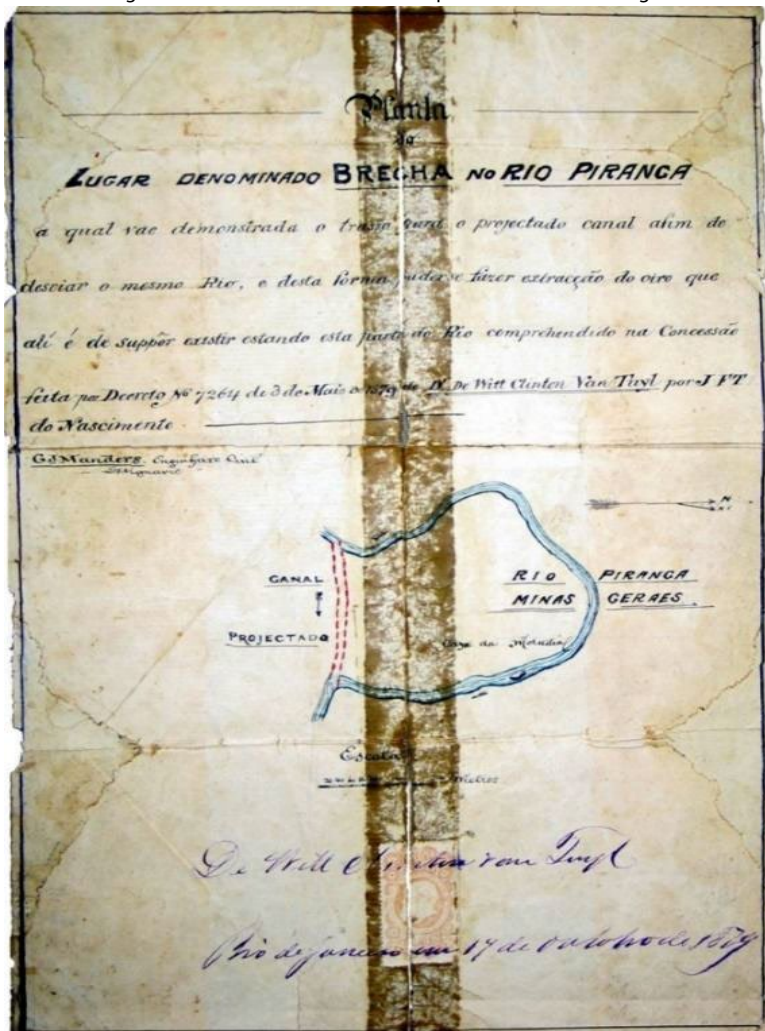 Planta
do
LUGAR DENOMINADO BRECHA NO RIO PIRANGA
a qual vae demonstrada o para o projectado canal afim de
desviar o mesmo Rio, e desta forma fazer extracção do oiro que
ali é de suppôr existir estando esta parte do Rio comprehendido na Concessão
feita por Decreto Nº 7264 de 3 de Maio 1879 De Witt Clinton Van Tuyl por J F T
do Nascimento
GJManders Engenheiro Civil
N
CANAL
PROJECTADO
RIO PIRANGA
MINAS GERAES.
da
Escala
Metros
De Witt Clinton van Tuyl
Rio de Janeiro em 17 de outobro de 1879